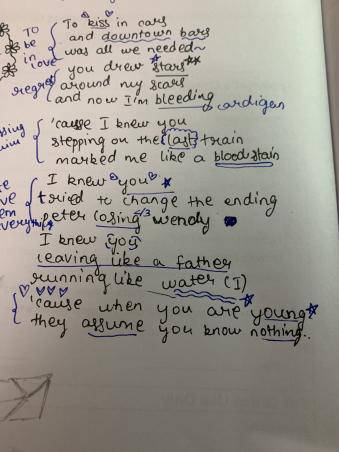 TO
BE
in
LOVE
To kiss in cars
and downtown bars
was all we needed~
you drew stars
around my scars
and now I'm bleeding
regret
cardigan
'cause I knew you
stepping on the last train
marked me like a blood stain
I knew you
tried to change the ending
peter losing wendy
I knew you
leaving like a father
running like water (I)
'cause when you are young
they assume you know nothing..